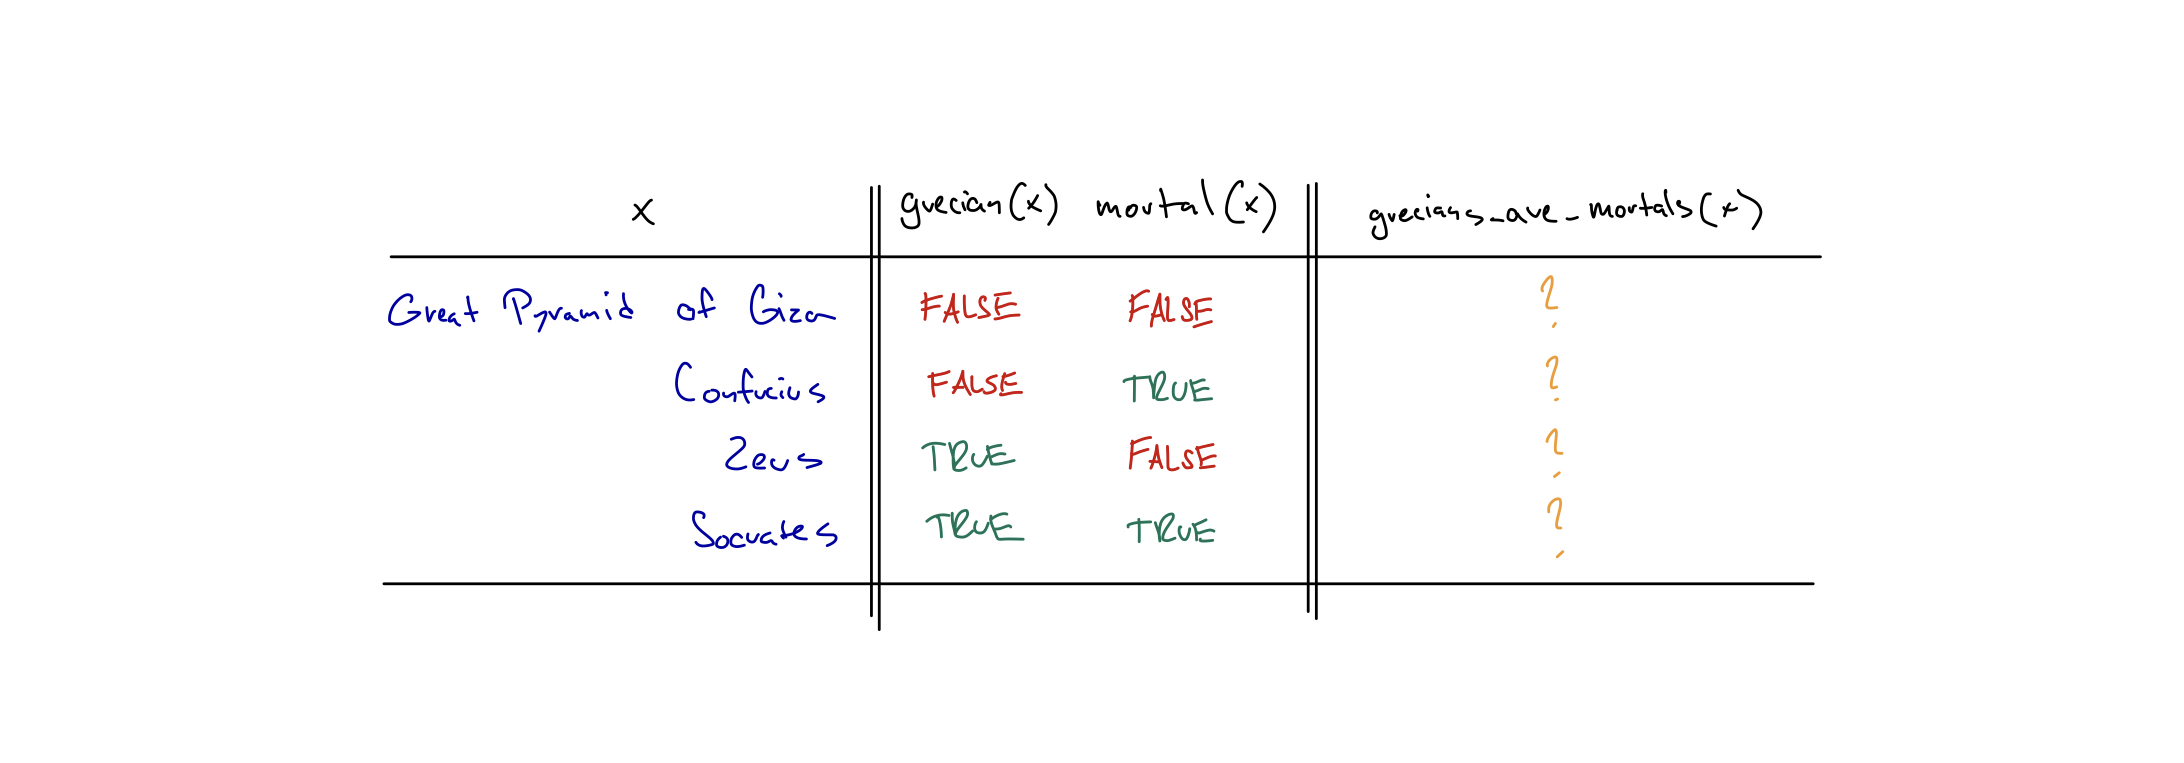 x grecian(x) mortal(x) grecians_are_mortals(x)
Great Pyramid of Giza FALSE FALSE ?
Confucius FALSE TRUE ?
Zeus TRUE FALSE ?
Socrates TRUE TRUE ?